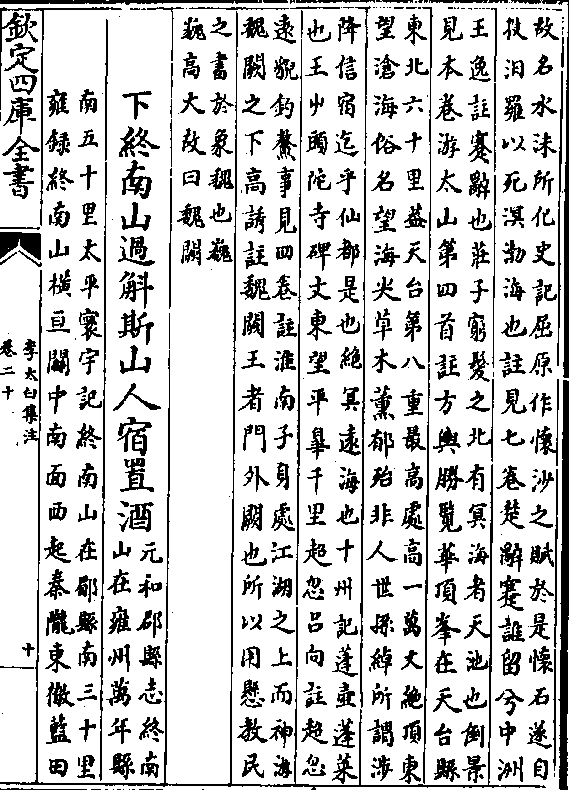 故名水沫所化史記屈原作懷沙之賦於是懷石遂自
投汨羅以死溟渤海也註見七卷楚辭蹇誰留兮中洲
王逸註蹇辭也莊子窮髮之北有冥海者天池也倒景
見本卷游太山第四首註方輿勝覽華頂峯在天台縣
東北六十里葢天台第八重最高處高一萬丈絶頂東
望滄海俗名望海尖草木薰郁殆非人世孫綽所謂涉
降信宿迄乎仙都是也絶冥逺海也十州記蓬壺蓬萊
也王屮頭陀寺碑文東望平臯千里超忽吕向註超忽
逺貌釣鰲事見四卷註淮南子身處江湖之上而神游
魏闕之下高誘註魏闕王者門外闕也所以用懸教民
之書於象魏也巍
巍高大故曰魏闕
下終南山過斛斯山人宿置酒
元和郡縣志終南
山在雍州萬年縣
南五十里太平寰宇記終南山在鄠縣南三十里
雍録終南山橫亘關中南面西起秦隴東徹藍田
欽定四庫全書
李太白集注
卷二十
十